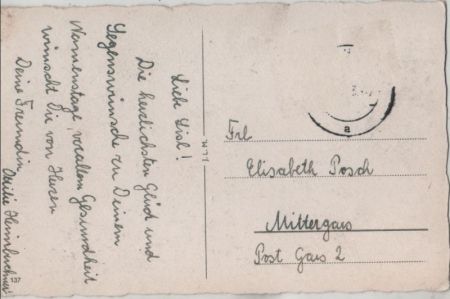 Liebe Lisl!
Die herzlichsten Glück und
Segenswünsche zu Deinem
Namenstage, vorallem Gesundheit
wünscht Dir von Herzen
Deine Freundin
Heimbuchner
137
Frl
Elisabeth Posch
Mittergars
Post Gars 2
a